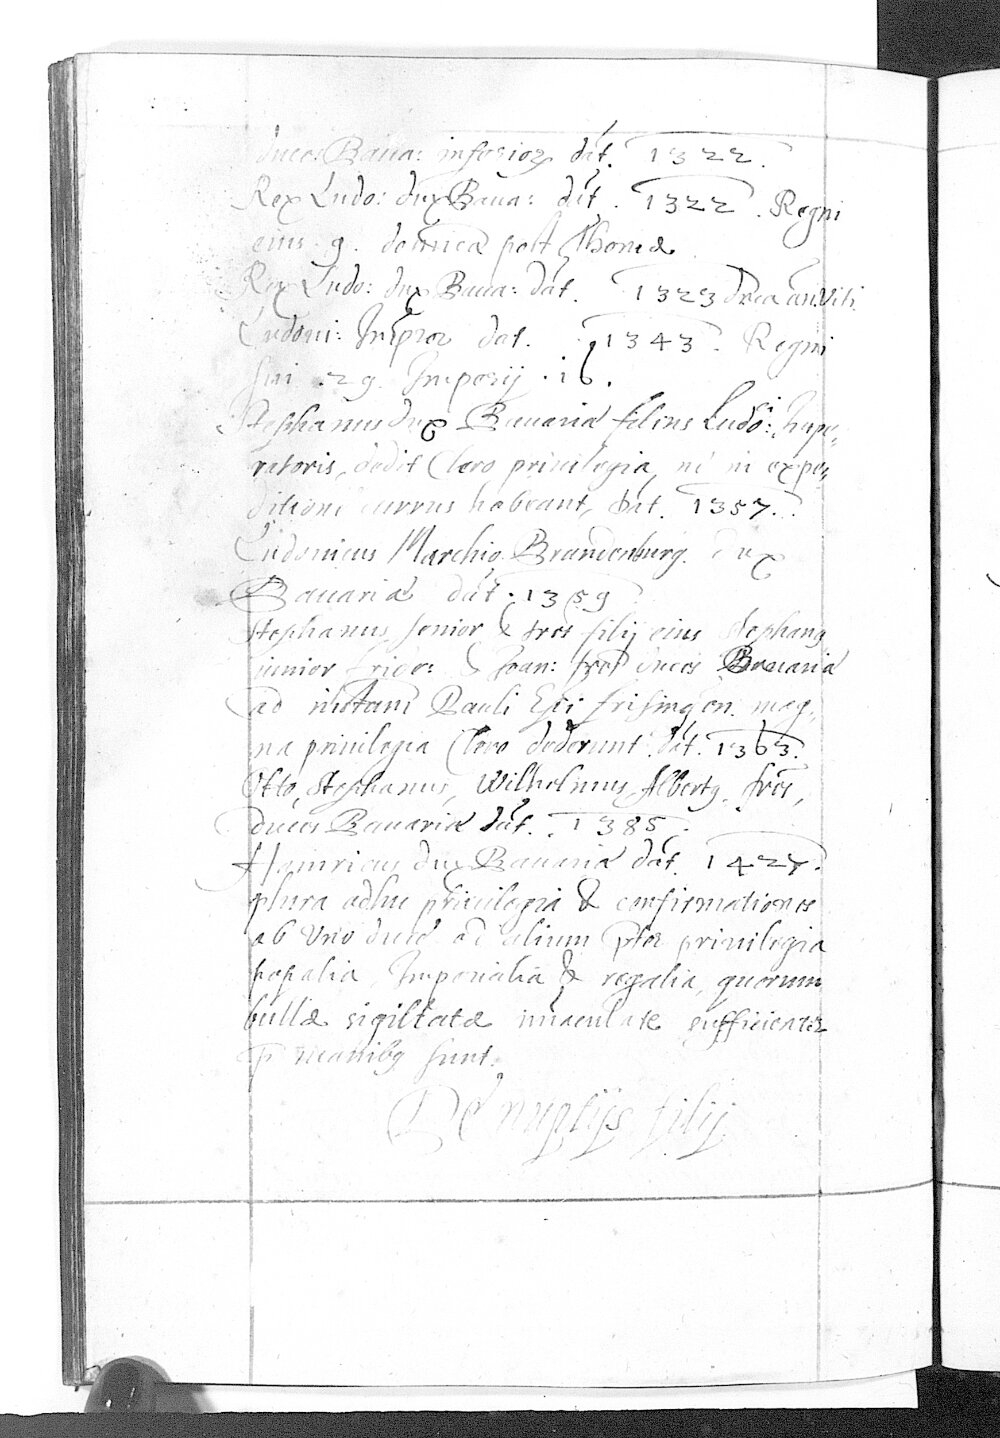 duces Baua: inferior dat. 1322.
Rex Ludo: dux Baua: dat. 1322. Regni
eius 9. domica post Thomæ
Rex Ludo: dux Baua: dat. 1323
Ludoui: Imptor dat. 1343. Regni
sui .29. Imperij .16.
Stephanus dux Bauariæ filius Ludoi: Impe„
ratoris, dedit Clero priuilegia, ni in expe„
ditioni currus habeant, dat. 1357.
Ludouicus Marchio Brandenburg. dux
Bauariæ dat. 1359
Stephanus senior & tres filij eius Stephang
iunior fride: & Joan: fres duces Bauariæ
ad instani Pauli Epi frisingen. mag„
na priuilegia Clero dederunt. dat. 1363.
Otto, Stephanus, Wilhelmus, Albertg, fres,
duces Bauariæ dat. 1385.
Hainricus dux Bauariæ dat. 1427.
plura adhuc priuilegia & confirmationes
ab Uno duce ad alium pter priuilegia
papalia, Imperialia & regalia, quorum
bullæ sigillatæ imaculate sufficienter
p manibg sunt.
De nuptijs filij